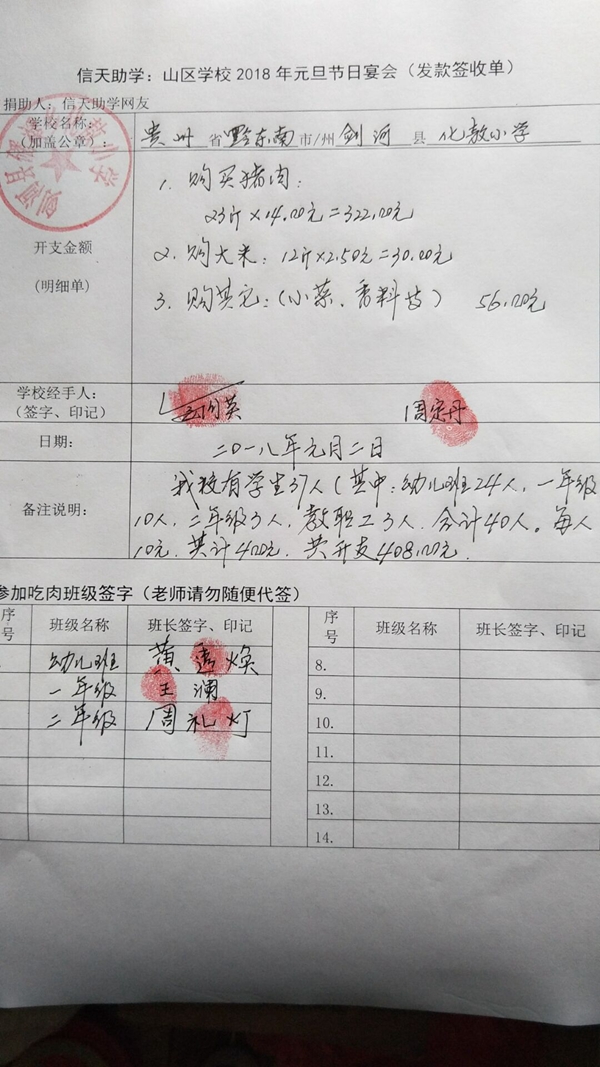 信天助学：山区学校2018年元旦节日宴会（发款签收单）
捐助人：信天助学网友
学校名称：
（加盖公章）：
贵州省黔东南市/州剑河县化敖小学
开支金额
(明细单)
1. 购买猪肉：
23斤×14.00元=322.00元
2. 购大米：12斤×2.50元=30.00元
3. 购其它：(小菜、香料等) 56.00元
学校经手人：
（签字、印记）
周定丹
日期：
二〇一八年元月二日
备注说明：
我校有学生37人(其中：幼儿班24人，一年级
10人，二年级3人，教职工3人，合计40人。每人
10元.共计400元.共开支408.00元.
参加吃肉班级签字（老师请勿随便代签）
序号 班级名称 班长签字、印记 序号 班级名称 班长签字、印记
幼儿班 黄 焕 8.
一年级 王澜 9.
二年级 周礼灯 10.
11.
12.
13.
14.